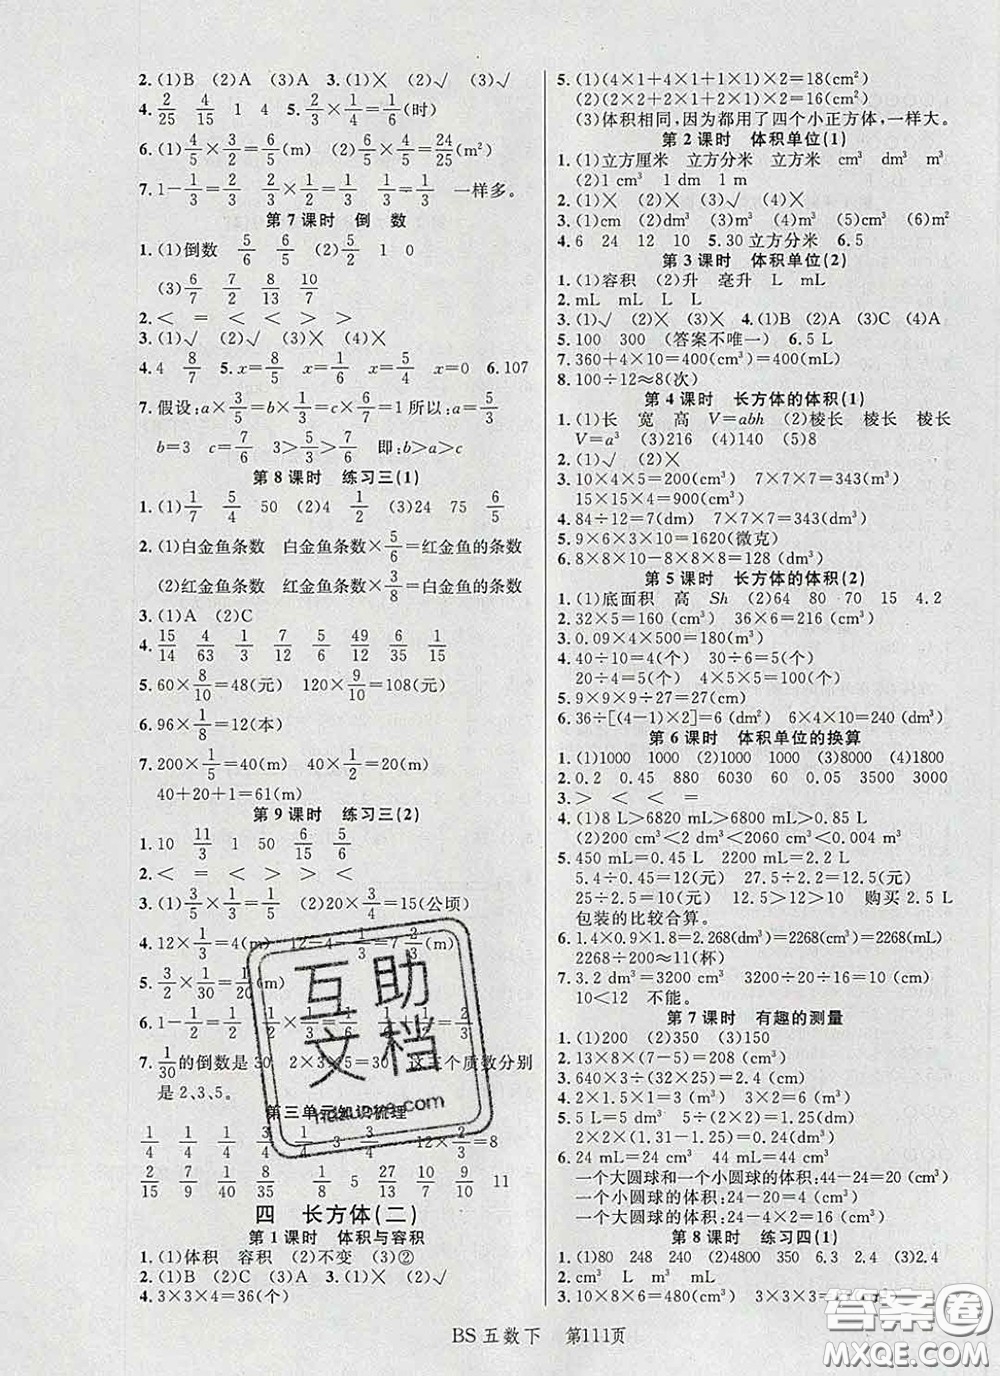 2.(1)B (2)A (3)A 3.(1)× (2)√ (3)√
4. 2/25 4/15 1 4 5. 2/3×1/4=1/6(时)
6.(1)4/5×3/2=6/5(m) (2)6/5×4/5=24/25(m²)
7.1-1/3=2/3 2/3×1/2=1/3 1/3=1/3 一样多。
第7课时 倒 数
1.(1)倒数 5/6 6/5 (2)5/2 1 0
(3)6/7 7/2 8/13 10/7
2.< = < < > >
3.(1)√ (2)√ (3)× (4)√
4.4 8/7 5.x=8/5 x=1/4 x=5/4 6.107
7.假设:a×3/5=b×1/3=c×6/7=1所以:a=5/3
b=3 c=7/6 3>5/3>7/6 即:b>a>c
第8课时 练习三(1)
1.(1)1/7 5/4 50 (2)4 1/2 (3)24 75 6/5
2.(1)白金鱼条数 白金鱼条数×5/6=红金鱼的条数
(2)红金鱼条数 红金鱼条数×3/8=白金鱼的条数
3.(1)A (2)C
4. 15/14 4/63 1/3 1/2 5/12 49/6 6/35 11/15
5.60×8/10=48(元) 120×9/10=108(元)
6.96×1/8=12(本)
7.200×1/5=40(m) 40×1/2=20(m)
40+20+1=61(m)
第9课时 练习三(2)
1.10 11/3 1 50 6/15 5/6
2.< = < > > <
3.(1)3/5×1/3=1/5 (2)20×3/4=15(公顷)
4.12×1/3=4(m) 12-4-1/3=7 2/3(m)
5. 3/2×1/30=1/20
6.1-1/2=1/2 1/2×1/3=
7. 1/30的倒数是30 2×3×5=30 这三个质数分别
是2、3、5。
第三单元知识梳理
1/4 1/4 1/4 1/2×1/2=1/4 12×2/3=8
2/15 7/40 9/7 5/9 13/7 5/4 27/10 10/9 9/10 11
四 长方体(二)
第1课时 体积与容积
1.(1)体积 容积 (2)不变 (3)②
2.(1)B (2)C (3)A 3.(1)× (2)√
4.3×3×4=36(个)
5.(1)(4×1+4×1+1×1)×2=18(cm²)
(2)(2×2+2×1+2×1)×2=16(cm²)
(3)体积相同,因为都用了四个小正方体,一样大。
第2课时 体积单位(1)
1.(1)立方厘米 立方分米 立方米 cm³ dm³ m³
(2)1 cm³ 1 dm 1 m
2.(1)× (2)× (3)√ (4)×
3.(1)cm (2)dm³ (3)m³ (4)cm³ (5)cm² (6)m³
4.6 24 12 10 5.30立方分米 6.5
第3课时 体积单位(2)
1.(1)容积 (2)升 毫升 L mL
2.mL mL L L
3.(1)√ (2)× (3)× 4.(1)B (2)A (3)C (4)A
5.100 300 (答案不唯一) 6.5 L
7.360+4×10=400(cm³)=400(mL)
8.100÷12≈8(次)
第4课时 长方体的体积(1)
1.(1)长 宽 高 V=abh (2)棱长 棱长 棱长
V=a³ (3)216 (4)140 (5)8
2.(1)√ (2)×
3.10×4×5=200(cm³) 7×7×7=343(cm³)
15×15×4=900(cm³)
4.84÷12=7(dm) 7×7×7=343(dm³)
5.9×6×3×10=1620(微克)
6.8×8×10-8×8×8=128 (dm³)
第5课时 长方体的体积(2)
1.(1)底面积 高 Sh (2)64 80 70 15 4.2
2.32×5=160 (cm³) 36×6=216 (dm³)
3.0.09×4×500=180(m³)
4.40÷10=4(个) 30÷6=5(个)
20÷4=5(个) 4×5×5=100(个)
5.9×9×9÷27=27(cm)
6.36÷[(4-1)×2]=6 (dm²) 6×4×10=240 (dm³)
第6课时 体积单位的换算
1.(1)1000 1000 (2)1000 1000 (3)8000 (4)1800
2.0.2 0.45 880 6030 60 0.05 3500 3000
3.> < < =
4.(1)8 L>6820 mL>6800 mL>0.85 L
(2)200 cm³<2 dm³<2060 cm³<0.004 m³
5.450 mL=0.45 L 2200 mL=2.2 L
5.4÷0.45=12(元) 27.5÷2.2=12.5(元)
25÷2.5=10(元) 12.5>12>10 购买2.5 L
包装的比较合算。
6.1.4×0.9×1.8=2.268(dm³)=2268(cm³)=2268(mL)
2268÷200≈11(杯)
7.3.2 dm³=3200 cm³ 3200÷20÷16=10(cm)
10<12 不能。
第7课时 有趣的测量
1.(1)200 (2)350 (3)150
2.13×8×(7-5)=208 (cm³)
3.640×3÷(40×20)=2.4 (cm)
4.2×2×1.5÷2=3(m³) 3×1.6=4.8(t)
5.5 L=5 dm³ 5÷(2×2)=1.25(dm)
2×2×(1.31-1.25)=0.24(dm³)
6.24 mL=24 cm³ 44 mL=44 cm³
一个大圆球和一个小圆球的体积:44-24=20(cm³)
一个小圆球的体积:24-20=4 (cm³)
一个大圆球的体积:20-4=16 (cm³)
第8课时 练习四(1)
1.(1)80 248 240 (2)4800 350 6.3 2.4 (3)2.4
2.cm³ L m³ cm³ mL
3.10×8×6=480(cm³) 3×3×3=
BS五数下 第111页
互助
文档
答案圈
MXQE.COM